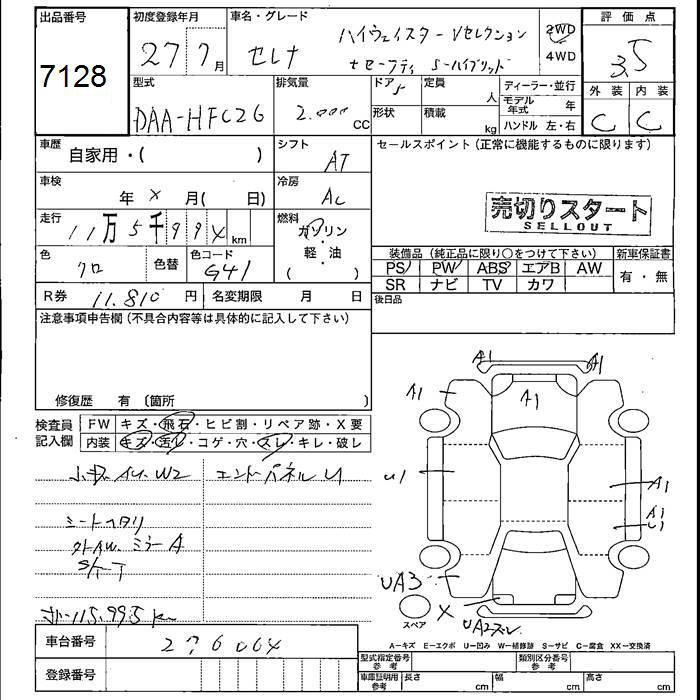 出品番号
7128
初度登録年月
27 7月
車名・グレード
セレナ
ハイウェイスター Vセレクション
+セーフティ S-ハイブリッド
2WD
4WD
評価点
3.5
外装 内装
C C
型式
DAA-HFC26
排気量
2.000cc
ドア
5
形状
定員
人
積載
kg
ディーラー・並行
モデル年式 年
ハンドル 左・右
車歴
自家用・( )
シフト
AT
セールスポイント (正常に機能するものに限ります)
車検
年 × 月( 日)
冷房
AC
売切りスタート
SELLOUT
走行
11万5千994km
燃料
ガソリン・軽・油
( )
色
クロ
色替
色コード
G41
装備品 (純正品に限り○をつけて下さい)
新車保証書
PS PW ABS エアB AW
SR ナビ TV カワ
有・無
R券 11.810 円
名変期限 月 日
後日品
注意事項申告欄 (不具合内容等は具体的に記入して下さい)
修復歴 有 〔箇所 〕
検査員記入欄
FW キズ・飛石・ヒビ割・リペア跡・X要
内装 キズ・汚レ・コゲ・穴・スレ・キレ・破レ
W2
エンドパネルU
シートヘタリ
ミラーA
メーター115.995km
A1 A1
A1 A1
U1 A1
A1
U1
UA3
X
UA2ズレ
スペア
A=キズ E=エクボ U=凹み W=補修跡 S=サビ C=腐食 XX=交換済
車台番号
276064
登録番号
型式指定番号 参考
類別区分番号 参考
車庫証明用 参考
長さ cm
幅 cm
高さ cm